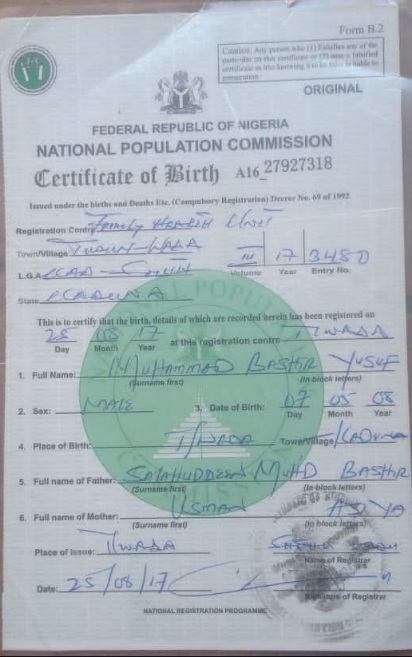 Form B.2
Caution: Any person who (1) Falsifies any of the
particular on this certificate or (2) uses a falsified
certificate as true knowing it to be false is liable to
prosecution
ORIGINAL
FEDERAL REPUBLIC OF NIGERIA
NATIONAL POPULATION COMMISSION
Certificate of Birth A16 27927318
Issued under the births and Deaths Etc. (Compulsory Registration) Decree No. 69 of 1992
Registration Centre Family Health Unit
Town/Village TUDUN-WADA
III 17 3480
L.G.A KAD-SOUTH Volume Year Entry No.
State KADUNA
This is to certify that the birth, details of which are recorded herein has been registered on
25 08 17 at this registration centre T/WADA
Day Month Year
1. Full Name: MUHAMMAD BASHIR YUSUF
(Surname first) (In block letters)
2. Sex: MALE 3. Date of Birth: 07 05 08
Day Month Year
4. Place of Birth: T/WADA Town/Village KADUNA
5. Full name of Father: SALAHUDDEEN MUHD BASHIR
(Surname first) (In block letters)
6. Full name of Mother: USMAN
(Surname first) (In block letters)
Place of Issue: T/WADA
Name of Registrar
Date: 25/08/17
Signature of Registrar
NATIONAL REGISTRATION PROGRAMME